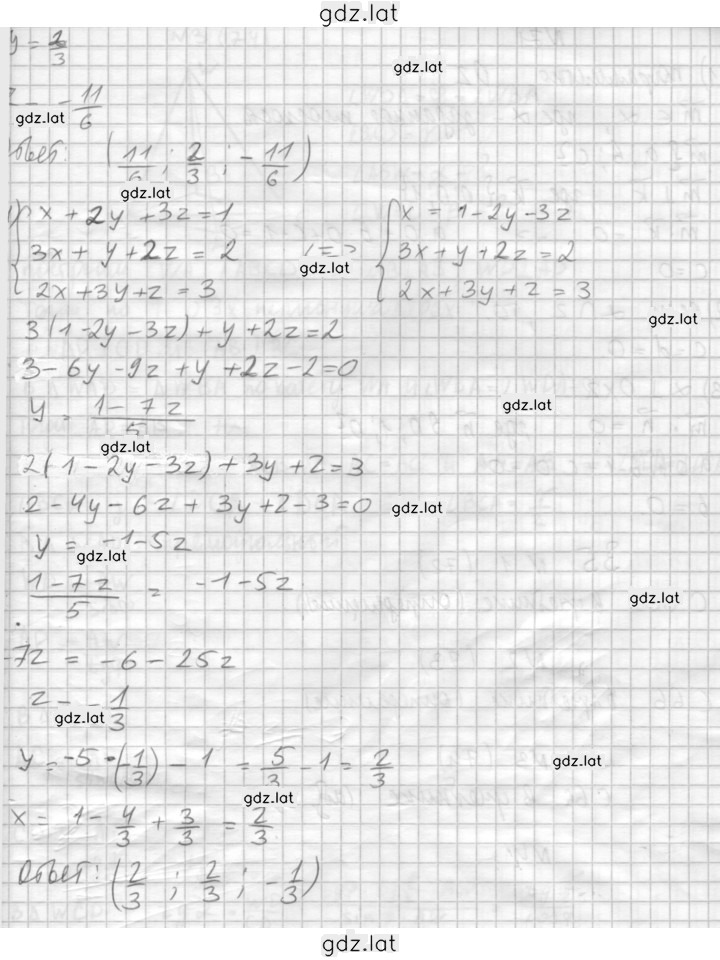 gdz.lat
y = 2/3
gdz.lat
z = -11/6
gdz.lat
Ответ: (11/6 ; 2/3 ; -11/6)
gdz.lat
{ x + 2y + 3z = 1
3x + y + 2z = 2
2x + 3y + z = 3
<=>
gdz.lat
{ x = 1-2y-3z
3x + y + 2z = 2
2x + 3y + z = 3
gdz.lat
3(1-2y-3z) + y + 2z = 2
3-6y-9z + y + 2z - 2 = 0
y = (1-7z)/5
gdz.lat
gdz.lat
2(1-2y-3z) + 3y + z = 3
2-4y-6z + 3y + z - 3 = 0
gdz.lat
y = -1-5z
gdz.lat
(1-7z)/5 = -1-5z
gdz.lat
-7z = -6-25z
z = -1/3
gdz.lat
y = -5·(-1/3) - 1 = 5/3 - 1 = 2/3
gdz.lat
gdz.lat
x = 1 - 4/3 + 3/3 = 2/3
Ответ: (2/3 ; 2/3 ; -1/3)
gdz.lat